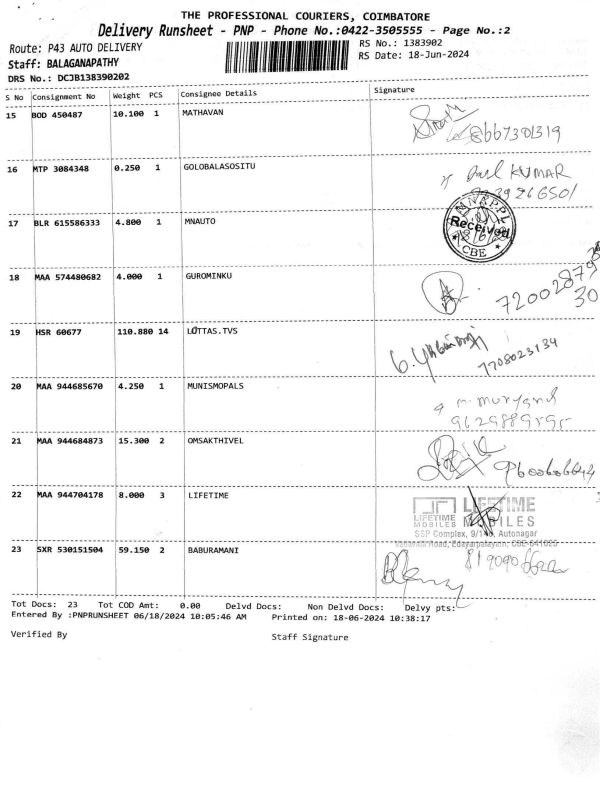 THE PROFESSIONAL COURIERS, COIMBATORE
Delivery Runsheet - PNP - Phone No.:0422-3505555 - Page No.:2
Route: P43 AUTO DELIVERY
RS No.: 1383902
Staff: BALAGANAPATHY
RS Date: 18-Jun-2024
DRS No.: DCJB138390202
S No Consignment No Weight PCS Consignee Details Signature
15 BOD 450487 10.100 1 MATHAVAN
8667301319
16 MTP 3084348 0.250 1 GOLOBALASOSITU
KUMAR
17 BLR 615586333 4.800 1 MNAUTO
Received
CBE
18 MAA 574480682 4.000 1 GUROMINKU
19 HSR 60677 110.880 14 LOTTAS.TVS
7708023134
20 MAA 944685670 4.250 1 MUNISMOPALS
9629889595
21 MAA 944684873 15.300 2 OMSAKTHIVEL
22 MAA 944704178 8.000 3 LIFETIME
LIFETIME MOBILES
SSP Complex, Autonagar
Road, Edayarpalayam, CBE-641025
23 SXR 530151504 59.150 2 BABURAMANI
Tot Docs: 23 Tot COD Amt: 0.00 Delvd Docs: Non Delvd Docs: Delvy pts:
Entered By :PNPRUNSHEET 06/18/2024 10:05:46 AM Printed on: 18-06-2024 10:38:17
Verified By Staff Signature